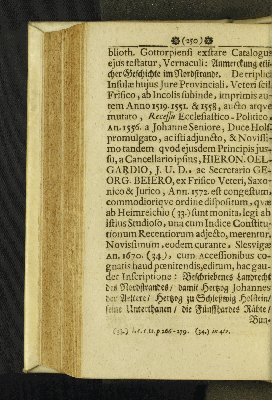 (250)
blioth. Gottorpiensi exstare Catalogus
ejus testatur, Vernaculi: Anmerckung etli-
cher Geschichte im Nordstrande. De triplici
Insulæ hujus Jure Provinciali. Veteri scil.
Frisico, ab Incolis subinde, imprimis au-
tem Anno 1519. 1551. & 1558, aucto atqve
mutato, Recessu Ecclesiastico-Politico,
An. 1556. a Johanne Seniore, Duce Hols.
promulgato, ac isti adjuncto, & Novissi-
mo tandem qvod ejusdem Principis jus-
su, a Cancellario ipsius, HIERON. OEL-
GARDIO, J. U. D. ac Secretario GE-
ORG. BEIERO, ex Frisico Veteri, Saxo-
nico & Jurico, Ann. 1572. est congestum,
commodioriqve ordine dispositum, qvæ
ab Heimreichio (33.) sunt monita, legi ab
istius Studioso, una cum Indice Constitu-
tionum Recentiorum adjecto, merentur,
Novissimum, eodem curante, Slesvigæ
An. 1670. (34.), cum Accessionibus co-
gnatis haud pœnitendis, editum, hac gau-
det Inscriptione: Beschriebenes Landrecht
des Nordstrandes/ damit Hertzog Johannes
der Aeltere/ Hertzog zu Schleßwig Holstein/
seine Unterthanen/ die Fünffhardes Räthe/
Bun-
(33.) l. c. c. 11. p 266-279. (34.) in 4to.